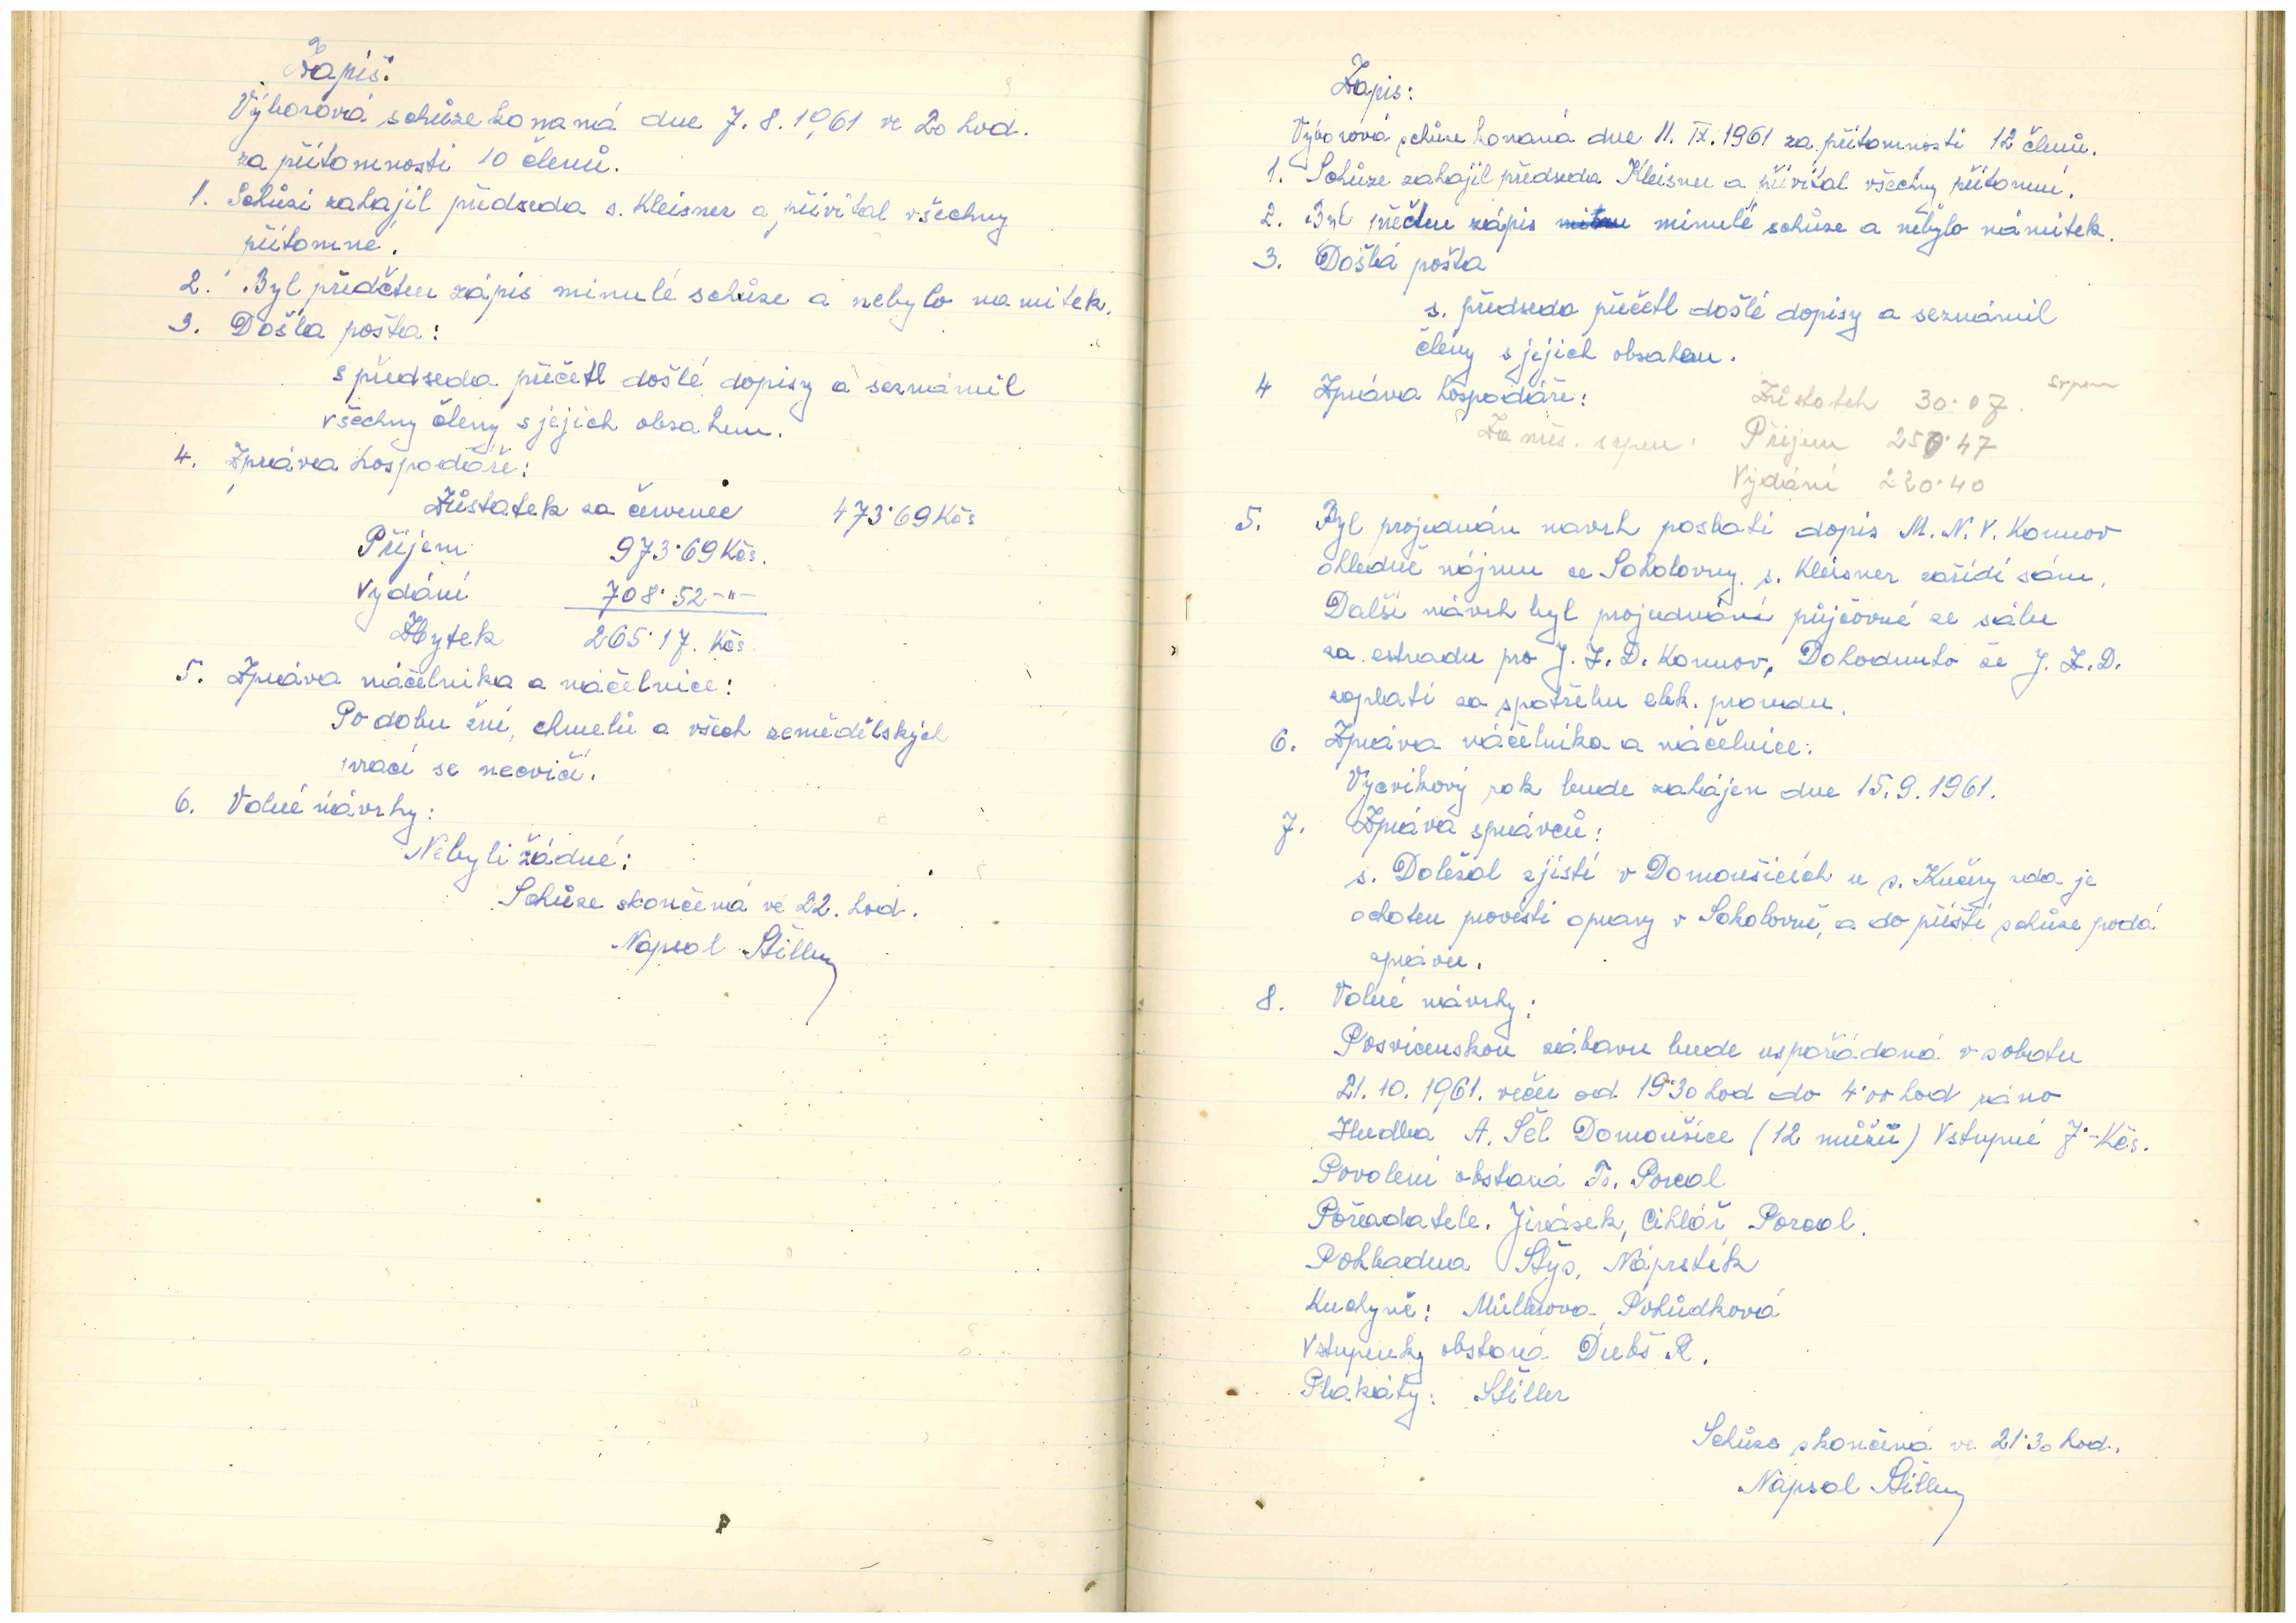 Zápis:
Výborová schůze konaná dne 7. 8. 1961 ve 20 hod.
za přítomnosti 10 členů.
1. Schůzi zahájil předseda s. Kleisner a přivítal všechny
přítomné.
2. Byl předčten zápis minulé schůze a nebylo namitek.
3. Došla pošta:
s předseda přečetl došlé dopisy a seznámil
všechny členy s jejich obsahem.
4. Zpráva hospodáře:
Zůstatek za červenec 473·69 Kčs
Příjem 973·69 Kčs.
Vydání 708·52 -"-
Zbytek 265·17. Kčs
5. Zpráva náčelníka a náčelnice:
Po dobu žní, chmelů a všech zemědělských
prací se necvičí.
6. Volné návrhy:
Nebyli žádné:
Schůze skončená ve 22. hod.
Napsal Štiller
Zápis:
Výborová schůze konaná dne 11. IX. 1961 za přítomnosti 12 členů.
1. Schůze zahájil předseda Kleisner a přivítal všechny přítomné.
2. Byl přečten zápis minulé schůze a nebylo námitek.
3. Došlá pošta
s. předseda přečetl došlé dopisy a seznámil
členy s jejich obsahem.
4 Zpráva hospodáře: Zůstatek 30·07. srpen
Za měs. srpen: Příjem 250·47
Vydání 220·40
5. Byl projednán navrh poslati dopis M. N. V. Konnov
ohledně nájmu ze Sokolovny. s. Kleisner zařídí sám.
Další návrh byl projednání půjčovné ze sálu
za estradu pro J. Z. D. Konnov, Dohodnuto že J. Z. D.
zaplatí za spotřebu elek. proudu.
6. Zpráva náčelníka a náčelnice:
Vycvikový rok bude zahájen dne 15. 9. 1961.
7. Zpráva správců:
s. Doležal zjistí v Domoušicích u s. Kučery zda je
ochoten provésti opravy v Sokolovně, a do příští schůze podá
zprávu.
8. Volné návrhy:
Posvícenskou zábavu bude uspořádaná v sobotu
21. 10. 1961. večer od 19·30 hod do 4·00 hod ráno
Hudba A. Šel Domoušice (12 mužů) Vstupné 7·- Kčs.
Povolení obstará Fr. Porcal
Pořadatele. Jirásek, Cihlář, Porcal.
Pokladna Štýs, Náprstek
Kuchyně: Müllerova, Pohůdková
Vstupenky obstará Dubš R.
Plakáty: Štiller
Schůze skončená ve 21·30 hod.
Napsal Štiller